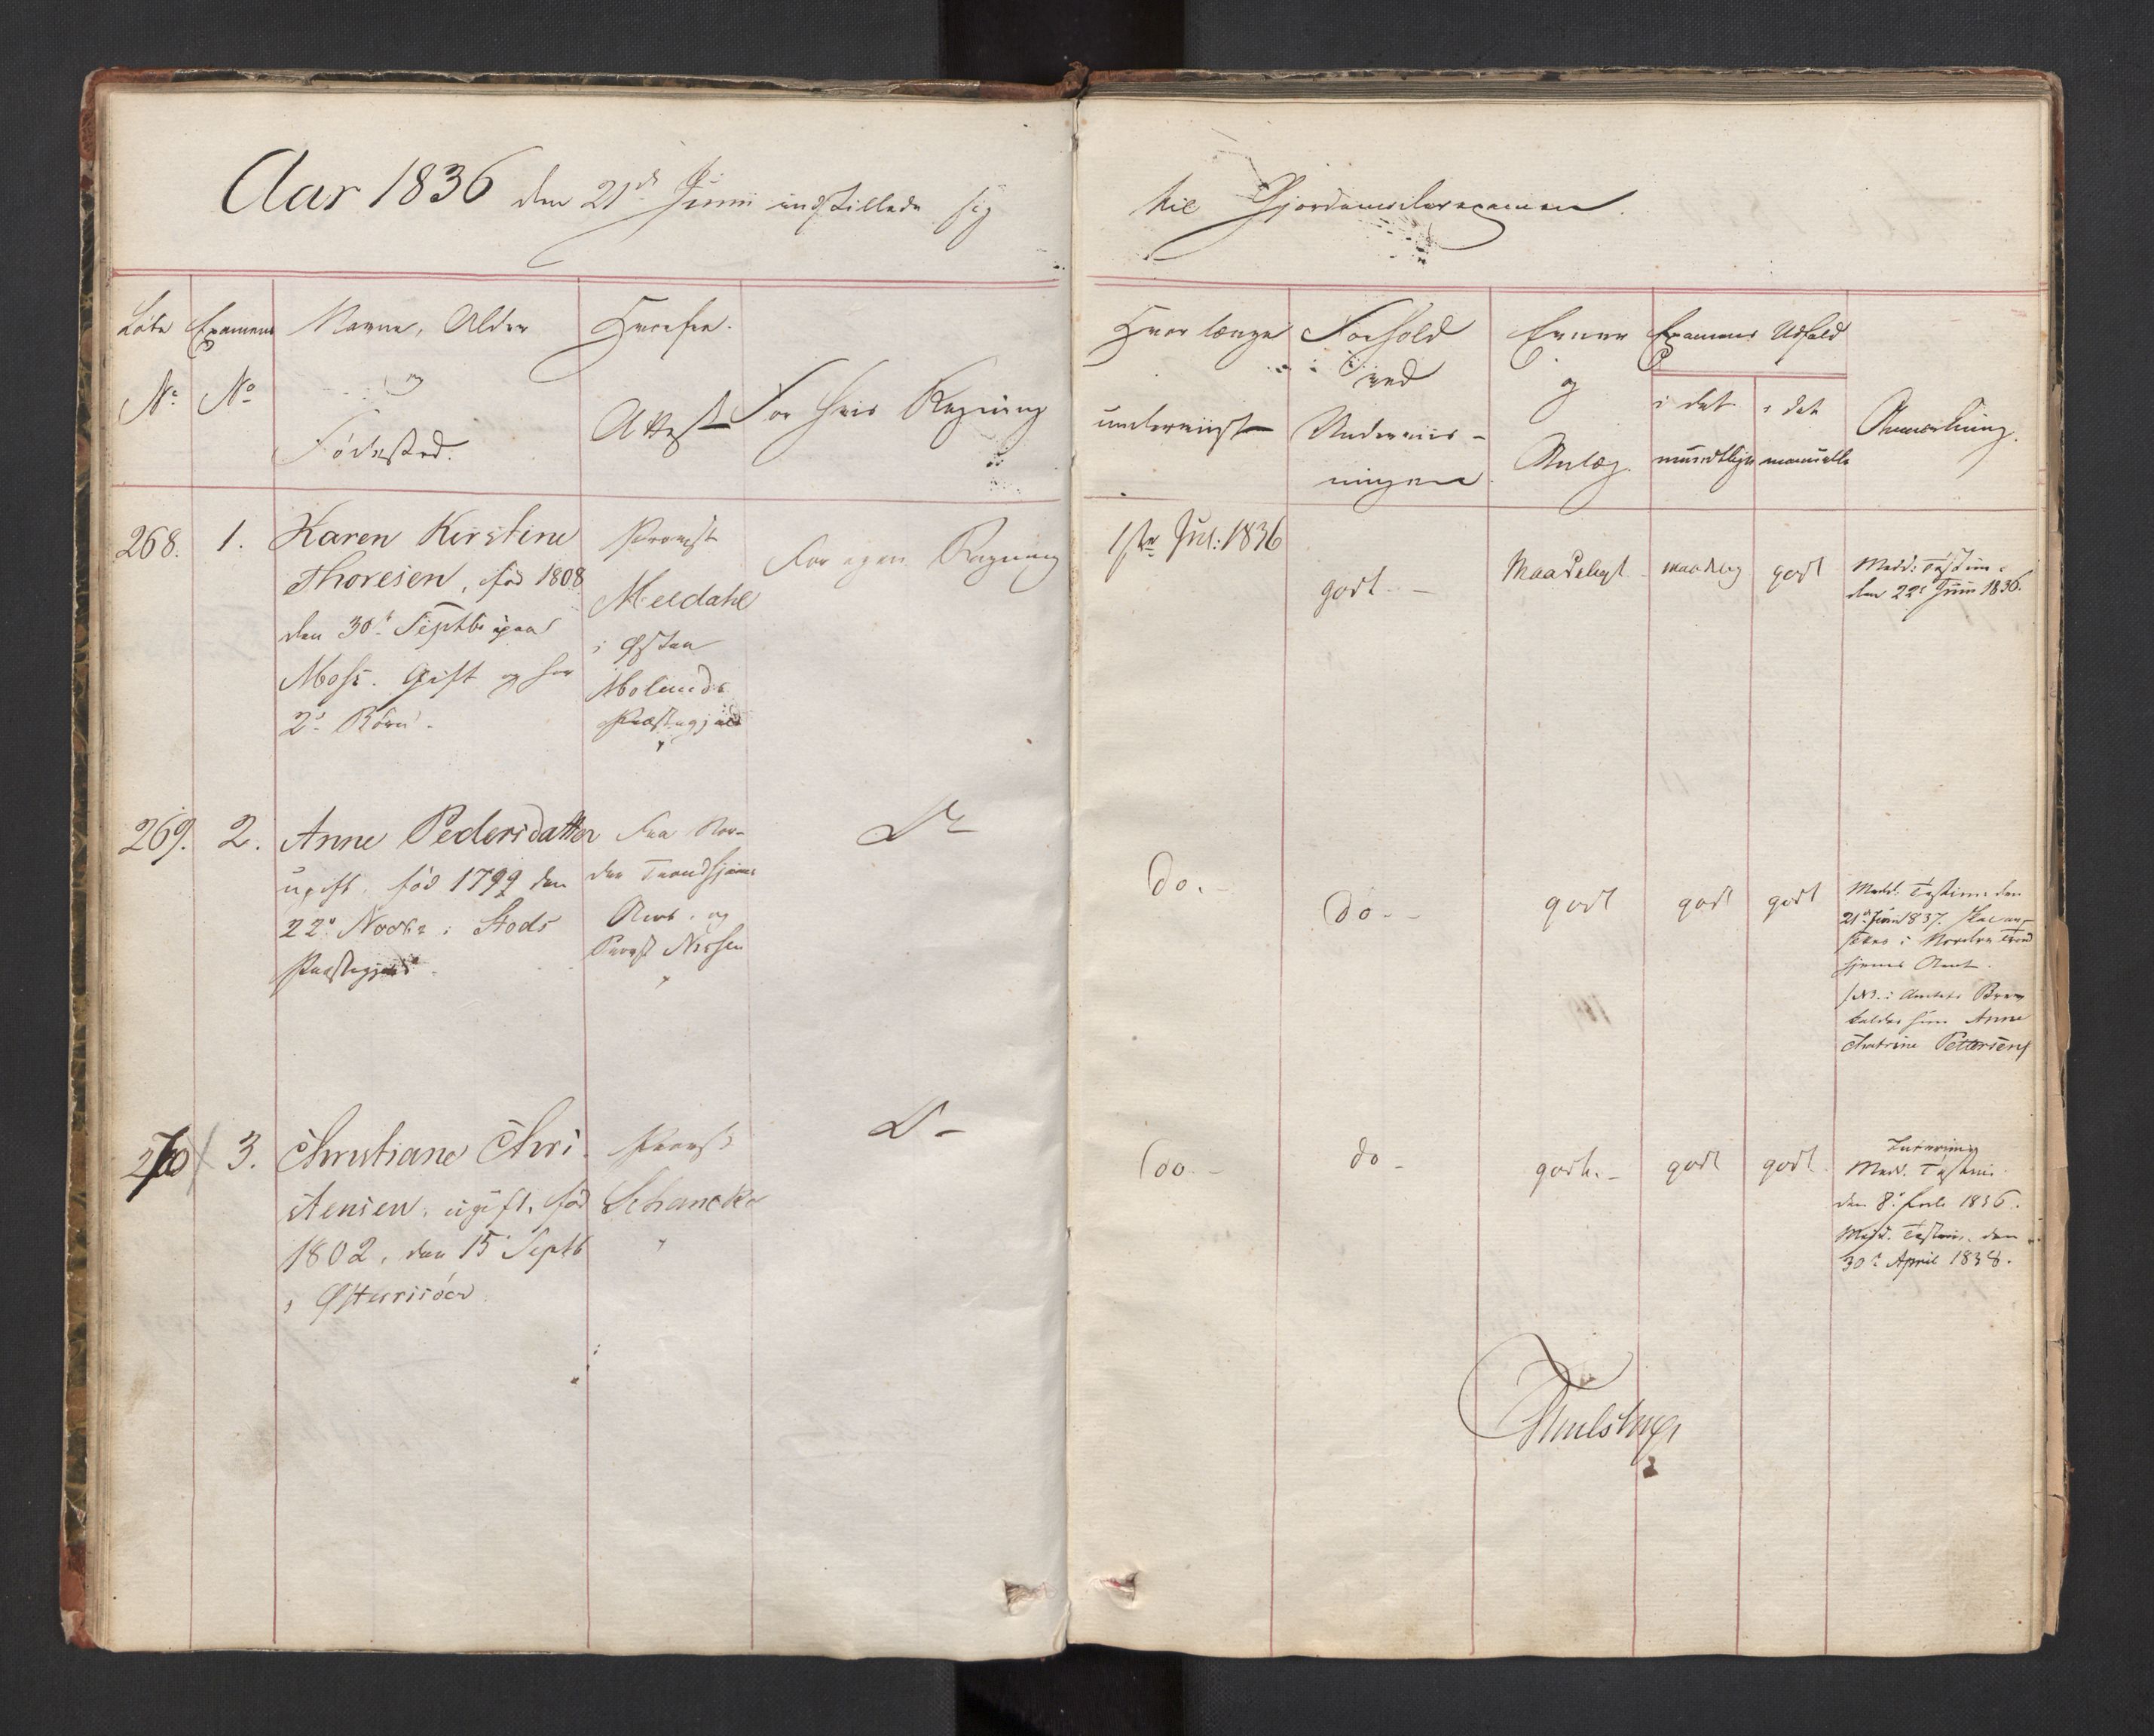 Aar 1836 den 21de Junii indstillede sig
til Gjordemoderexamen.
Løbe
No
Examens
No
Navne, Alder
og
Fødested.
Hvorfra.
Attest
For hvis Regning
Hvor længe
underviist
Forhold
ved
Underviis-
ningen.
Evner
og
Anlæg.
Examens Udfald
i det
mundtlige
i det
manuelle
Anmærkning.
268.
1.
Karen Kirstine
Thoresen, fød 1808
den 30te Septbr paa
Moss. Gift og har
2de Børn.
Provst
Meldahl
i Østre
Molands
Præstegjæld
For egen Regning
1ste Jul: 1836
godt -
Maadeligt
maadelig
godt
Medd: Testim.
den 22de Junii 1836.
269.
2.
Anne Pedersdatter
ugift, fød 1799 den
22de Novbr i Stods
Præstegjæld.
Fra Nor-
dre Trondhjems
Amt. og
Provst Nissen
Do
do. -
do. -
godt
godt
godt
Medd. Testim. den
21de Juni 1837. Skal an-
sættes i Nordre Trond
hjems Amt.
/NB. i Amtets Brev
kaldes hun Anne
Chatrine Pettersen/
270
3.
Christiane Chri
stensen, ugift, fød
1802, den 15de Septb
i Østerrisøer.
Provst
Schancke
Do -
do. -
do -
godt. -
godt
godt
Interims
Medd. Testim.
den 8de Juli 1836.
Medd. Testim. den
30te April 1838.